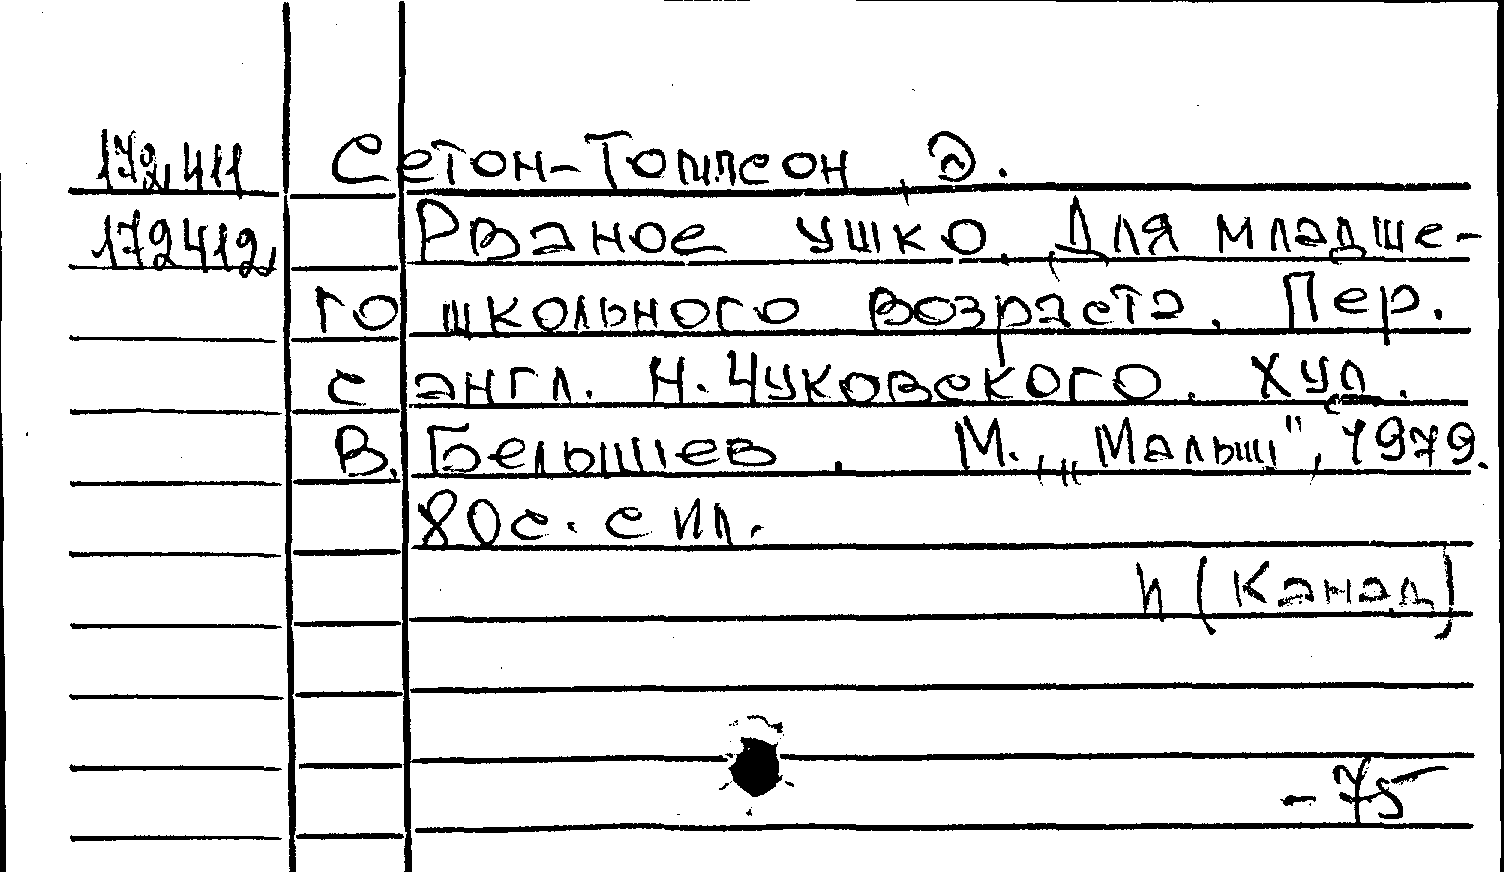 172411 Сетон-Томпсон, Э.
172412 Рваное ушко. Для младше-
го школьного возраста. Пер.
с англ. Н. Чуковского. Худ.
В. Белышев. М., „Малыш", 1979.
80 с. с ил.
И (Канад)
- 75